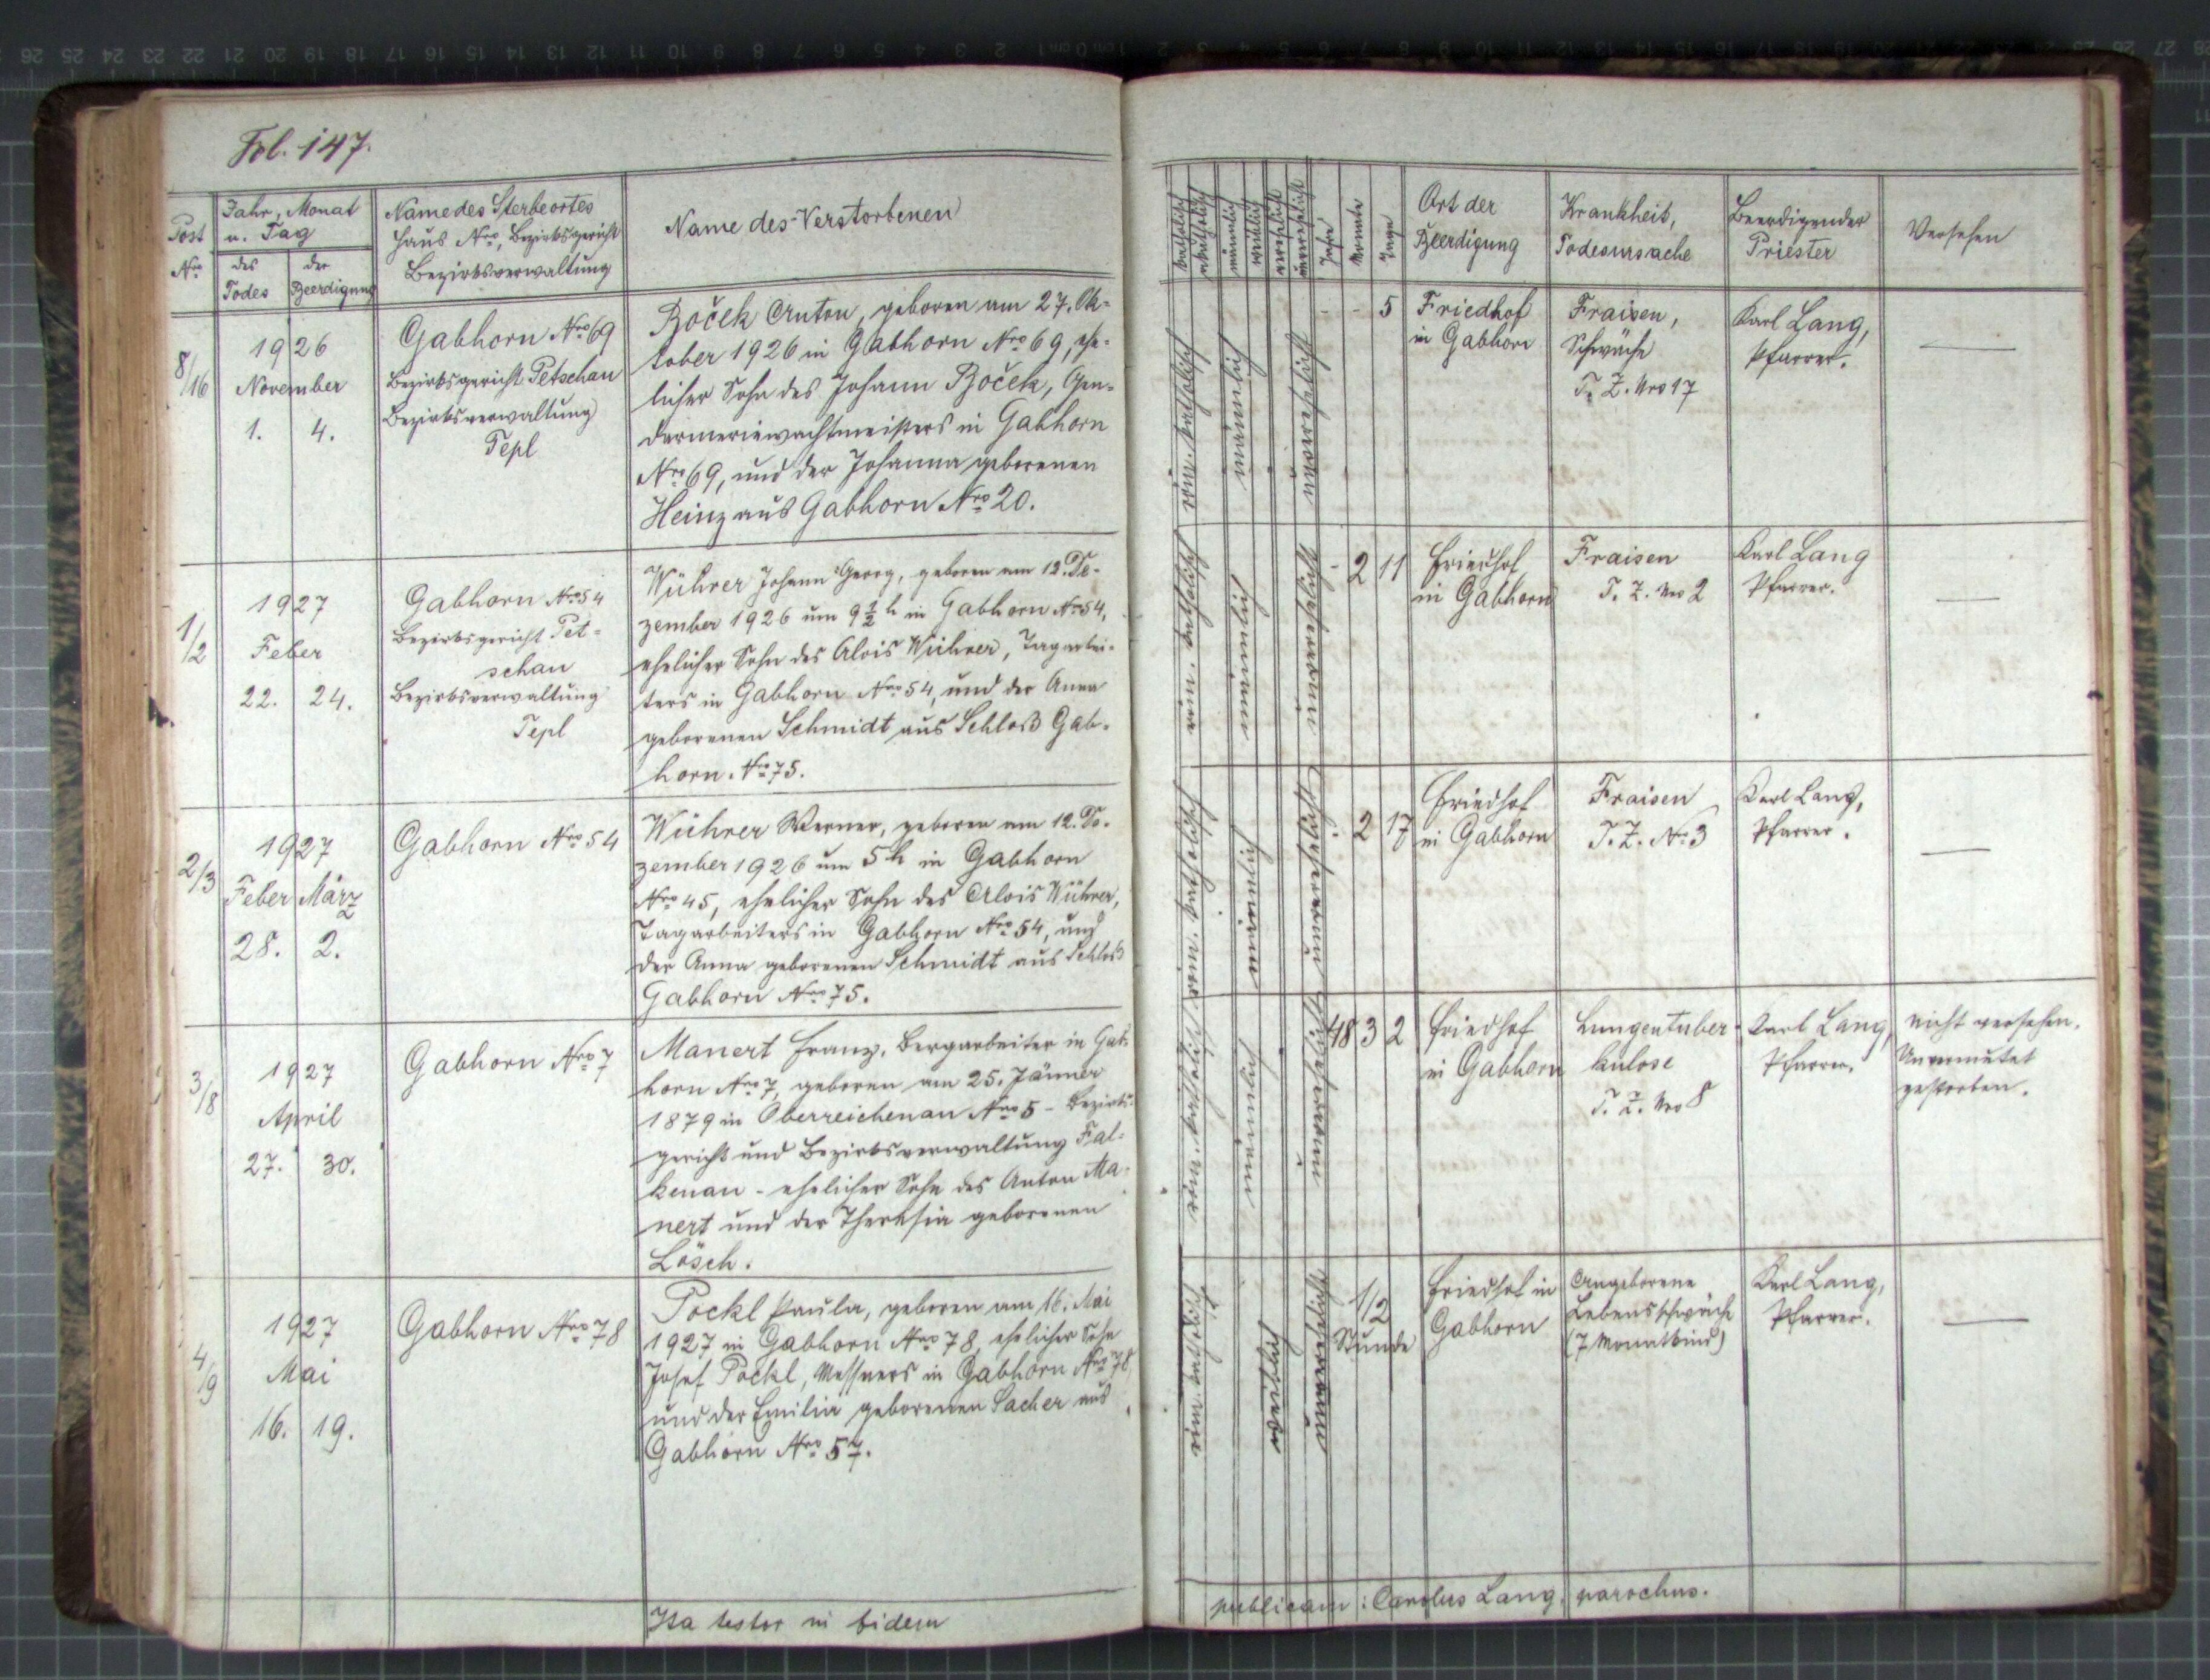 Fol. 147.
Post
Nro
Jahr, Monat
u. Tag
des
Todes
der
Beerdigung
Name des Sterbeortes
Haus Nro, Bezirksgericht
Bezirksverwaltung
Name des Verstorbenen
katholisch
akatholisch
männlich
weiblich
verehelicht
unverehelicht
Jahre
Monate
Tage
Ort der
Beerdigung
Krankheit,
Todesursache
Beerdigender
Priester
Versehen
8/16
1926
November
1. 4.
Gabhorn Nro 69
Bezirksgericht Petschau
Bezirksverwaltung
Tepl
Boček Anton, geboren am 27. Ok-
tober 1926 in Gabhorn Nro 69, ehe-
licher Sohn des Johann Boček, Gen-
darmeriewachtmeisters in Gabhorn
Nro 69, und der Johanna geborenen
Heinz aus Gabhorn Nro 20.
röm. katholisch
männlich
unverehelicht
- - 5
Friedhof
in Gabhorn
Fraisen,
Schwäche
T. Z. Nro 17
Karl Lang,
Pfarrer.
—
1/2
1927
Feber
22. 24.
Gabhorn Nro 54
Bezirksgericht Pet-
schau
Bezirksverwaltung
Tepl
Wührer Johann Georg, geboren am 12. De-
zember 1926 um 9 1/2 h in Gabhorn Nro 54,
ehelicher Sohn des Alois Wührer, Tagarbei-
ters in Gabhorn Nro 54, und der Anna
geborenen Schmidt aus Schloß Gab-
horn. Nro 75.
röm. katholisch
männlich
unverehelicht
- 2 11
Friedhof
in Gabhorn
Fraisen
T. Z. Nro 2
Karl Lang
Pfarrer.
—
2/3
1927
Feber März
28. 2.
Gabhorn Nro 54
Wührer Werner, geboren am 12. De-
zember 1926 um 5 h in Gabhorn
Nro 45, ehelicher Sohn des Alois Wührer,
Tagarbeiters in Gabhorn Nro 54, und
der Anna geborenen Schmidt aus Schloß
Gabhorn Nro 75.
röm. katholisch
männlich
unverehelicht
- 2 17
Friedhof
in Gabhorn
Fraisen
T. Z. Nro 3
Karl Lang,
Pfarrer.
—
3/8
1927
April
27. 30.
Gabhorn Nro 7
Manert Franz, Bergarbeiter in Gab-
horn Nro 7, geboren am 25. Jänner
1879 in Oberreichenau Nro 5 - Bezirks-
gericht und Bezirksverwaltung Fal-
kenau - ehelicher Sohn des Anton Ma-
nert und der Theresia geborenen
Lösch.
röm. katholisch
männlich
unverehelicht
48 3 2
Friedhof
in Gabhorn
Lungentuber-
kulose
T. Z. Nro 8
Karl Lang,
Pfarrer.
nicht versehen.
Unvermutet
gestorben.
4/9
1927
Mai
16. 19.
Gabhorn Nro 78
Pockl Paula, geboren am 16. Mai
1927 in Gabhorn Nro 78, ehelicher Sohn
Josef Pockl, Messners in Gabhorn Nro 78
und der Emilia geborenen Sacher aus
Gabhorn Nro 57.
röm. katholisch
weiblich
unverehelicht
1/2
Stunde
Friedhof in
Gabhorn
Angeborene
Lebensschwäche
(7 Monatkind)
Karl Lang,
Pfarrer.
—
Ita testor in fidem
publicam: Carolus Lang, parochus.